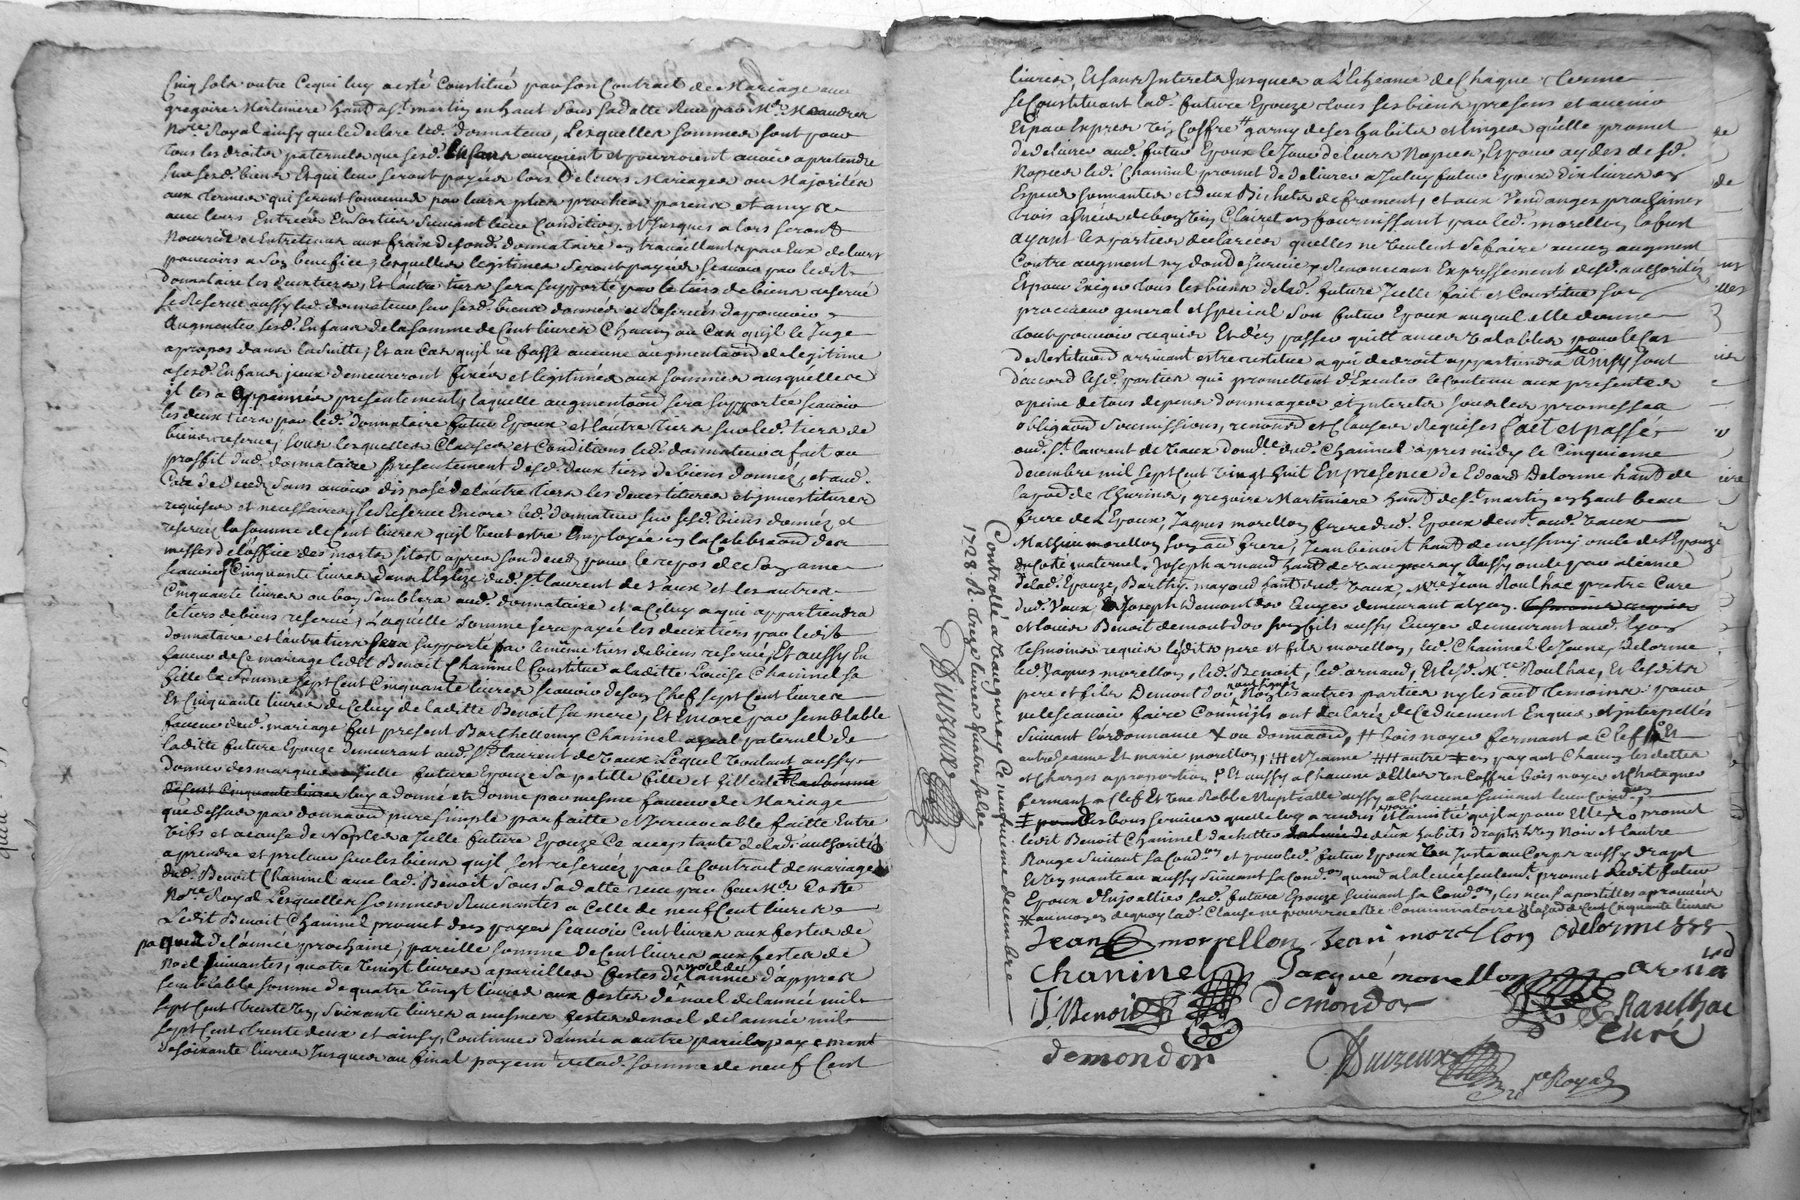 cinq sols outre cequi luy a esté Constitué par son Contrat de Mariage avec
gregoire Martiniere hant a st. martin en haut sous sa datte Receu par Me.
No.re Royal ainsy qu'il declare led. donnateur, Lesquelles sommes sont pour
tous les droits paternels que sesd. Enfans auroient et pourroient avoir a pretendre
sur sesd. biens Et qui leur seront payées lors de leurs Mariages ou Majorités
aux termes qui seront Convenus par leurs plus proches parens et amys
avec leurs Entrées Et sorties suivant leur Condition, et Jusques a lors seront
Nourris et Entretenus aux fraix dud. donnataire en travaillant par Eux de leurs
pouvoirs a son benefice ; lesquelles legitimes seront payées scavoir par ledit
donnataire les deux tiers, Et l'autre tiers sera supporté par le tiers de biens reservé
se Reserve aussy led. donnateur sur sesd. biens donnés et Reservés de pouvoir
Augmenter sesd. Enfans de la somme de Cent livres Chacun au Cas qu'il le Juge
apropos dans la suitte ; Et au Cas qu'il ne fasse aucune augmentaon de legitime
a sesd. Enfans jceux demeureront fixés et legitimés aux sommes ausquelles
il les a presentement, laquelle augmentaon sera supportée scavoir
les deux tiers par led. donnataire futur Epoux et l'autre tiers sur led. tiers de
biens reservé, sous lesquelles Clauses et Conditions led. donnateur a fait au
proffit dud. donnataire presentement desd. deux tiers de biens donnés, et aud.
Cas de deces sans avoir disposé de l'autre tiers les devestitures et jnvestitures
requises et necessaires, se Reserve Encore led. donnateur sur sesd. biens donnés et
reservés la somme de Cent livres qu'il veut estre Employée en la Celebraon des
messes de l'office des morts sitost apres son deces pour le repos de son ame
scavoir Cinquante livres dans l'Eglize dud. st laurent de vaux et les autres
Cinquante livres ou bon semblera aud. donnataire et a Celuy a qui appartiendra
le tiers de biens reservé, Laquelle somme sera payée les deux tiers par ledit
donnataire et l'autre tiers sera supporté par le meme tiers de biens reservé, Et aussy En
faveur de Ce mariage ledit Benoit Chaninel Constitue a laditte Louise Chaninel sa
fille la somme sept Cent Cinquante livres scavoir de son Chef sept Cent livres
Et Cinquante livres de Celuy de laditte Benoit sa mere, Et Encore par semblable
faveur dud. mariage fut present Barthellemy Chaninel ayeul paternel de
laditte future Epouze demeurant aud. st laurent de Vaux Lequel voulant aussy
donner des marques a jcelle future Epouze sa petitte fille et filleule la somme
de Cent Cinquante livres luy a donné et donne par mesme faveur de Mariage
que dessus par donnaon pure simple parfaitte et jrrevocable faitte Entre
vifs et a cause de Nopces a jcelle future Epouze Ce acceptante de lad. authorité
a prendre et prelever sur les biens qu'il s'est reservés par le Contrat de mariage
dud. Benoit Chaninel avec lad. Benoit sous sa datte receu par feu Me. Coste
No.re Royal Lesquelles sommes Revenantes a Celle de neuf Cent livres
Ledit Benoit Chaninel promet de payer scavoir Cent livres aux festes de
paques de l'année prochaine, pareille somme de Cent livres aux festes de
Noel suivantes, quatre vingt livres a pareilles festes de noel de l'année d'apprés
semblable somme de quatre vingt livres aux festes de noel de l'année mil
sept Cent trente un, soixante livres a mesmes festes de noel de l'année mil
sept Cent trente deux et ainsy Continuer d'année a autre pareils payement
de soixante livres Jusques au final payemt. de lad. somme de neuf Cent
livres, Et sans Interets Jusques a L'Echeance de Chaque terme
se Constituant lad. future Epouze tous ses biens presens et avenir
Et par Exprés un Coffre garny de ses habits et linges qu'elle promet
de delivrer aud. futur Epoux le Jour de leurs Nopces, Et pour aydes desd.
Nopces led. Chaninel promet de delivrer a jceluy futur Epoux dix livres en
Especes sonnantes et deux Bichets de froment, et aux Vendanges prochaines
trois asnées de bon vin Clairet en fournissant par led. morellon le fust
ayant les parties declarées quelles ne veulent se faire aucun augment
Contre augment ny don de survie, Renoncans Expressement desd. authorités
Et pour Exiger tous les biens de lad. future Jcelle fait et Constitue son
procureur general et special son futur Epoux auquel elle donne
tout pouvoir requis Et d'en passer quittances valables pour le Cas
de Restituon arrivant estre restitué a qui de droit appartiendra ainsy sont
d'accord lesd. parties qui promettent d'Executer le Contenu aux presentes
a peine de tous depens dommages et jnterets sous les promesses
obligaons soumissions, renonons et Clauses Requises fait et passé
aud. St. laurent de Vaux dans dud. Chaninel apres midy le Cinquieme
decembre mil sept Cent vingt huit En presence de Edoard Delorme hant de
la de Thurins, gregoire Martiniere hant de st. martin en haut beau
frere de L'Epoux, Jaques morellon frere dud. Epoux demt. aud. Vaux
Mathieu morellon son au frere, Jean benoit hant de messimy oncle de l'Epouze
du Coté maternel, Joseph arnaud hant de vaugneray Aussy oncle par aliance
de lad. Epouze, Barthy. hant dud. Vaux, Me. Jean Roulhac prestre Curé
dud. Vaux, Joseph Demont dor Ecuyer demeurant a Lyon
et louis Benoit demont dor son fils aussy Ecuyer demeurant aud. lyon
tesmoins requis lesdits pere et fils morellon, led. Chaninel le Jeune, Delorme
led. Jaques morellon, led. Benoit, led. arnaud, Et led. Me. Roulhac, et lesdits
pere et fils Demont dor ont signés Non les autres parties ny les aud. temoins pour
ne le scavoir faire Comme jls ont declarés de Ce duement Enquis et jnterpellés
suivant l'ordonnance bois noyer fermant a Clef Et
autre Jeanne Et marie morellon, et Jeanne autre en payant Chacun les dettes
et Charges a proportion, Et aussy a Chacune d'Elles un Coffre bois noyer et Chatagner
fermant a Clef Et Une Robbe Nuptialle aussy a Chacune suivant leur Condon,
les bons services quelle luy a rendus et l'amitié qu'il a pour Elle promet
ledit Benoit Chaninel d'achetter deux habits drap un Noir et l'autre
Rouge suivant sa Condon et pour led. futur Epoux un Juste au Corps aussy drapt
Et un manteau aussy suivant sa Condon quand a la leur seulemt. promet Ledit futur
Epoux d'Enjoalier lad. future Epouze suivant sa Condon, les neuf apostilles aprouvées
au moyen de quoy lad. Clause ne pourra estre Comminatoire de Cent Cinquante livres
Jean morrellon Jean morellon Edelorme
Chaninel Jacque morellon arnad
J. Benoit demondor Raoulhac
Curé
demondor
Duizeux No.re Royal
Controllé a Vaugneray Ce neufvieme decembre
1728. R. treize livres quatre sols
Duizeux